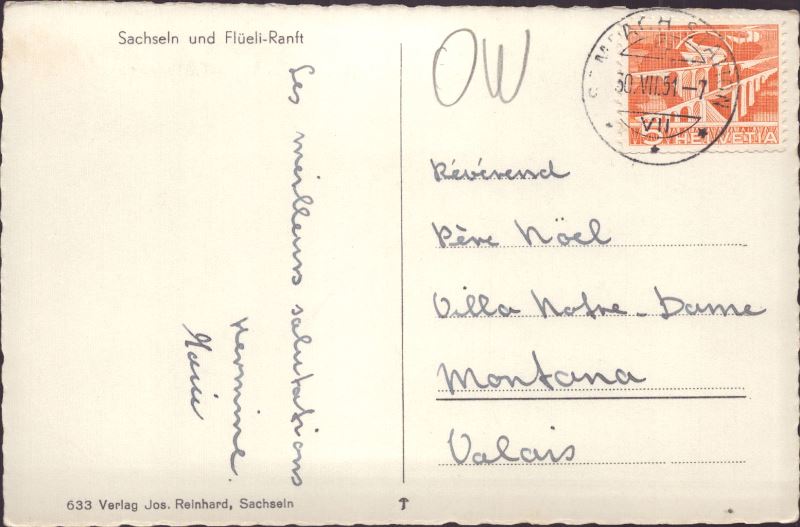 Sachseln und Flüeli-Ranft
Les meilleurs salutations
Hermine.
Marie
633 Verlag Jos. Reinhard, Sachseln
OW
SEMPACH-STATION
30.VII.51.-7
VII
5 HELVETIA
Révérend
Père Nöel
Villa Notre-Dame
Montana
Valais